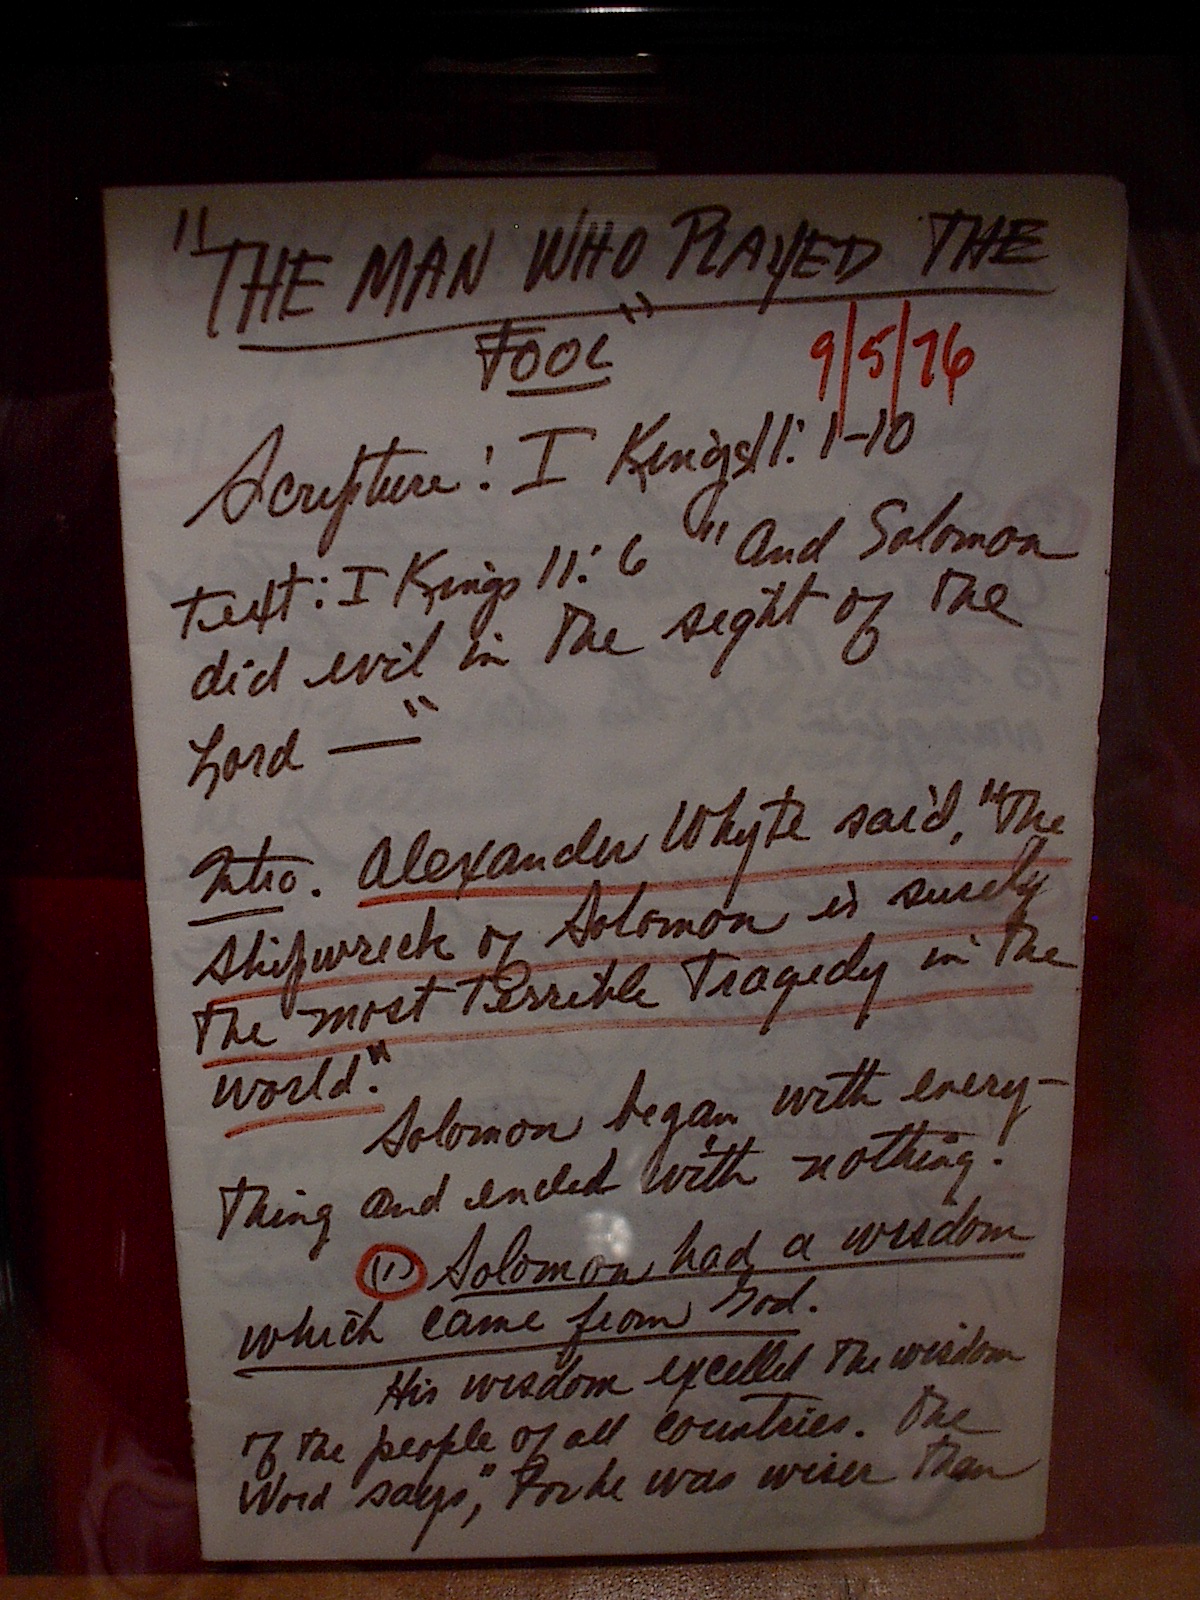 "THE MAN WHO PLAYED THE
FOOL"
9/5/76
Scripture: I Kings 11: 1-10
Text: I Kings 11: 6 "And Solomon
did evil in the sight of the
Lord —"
Intro. Alexander Whyte said, "The
shipwreck of Solomon is surely
the most terrible tragedy in the
world."
Solomon began with every-
thing and ended with nothing.
(1) Solomon had a wisdom
which came from God.
His wisdom excelled the wisdom
of the people of all countries. The
Word says, "For he was wiser than